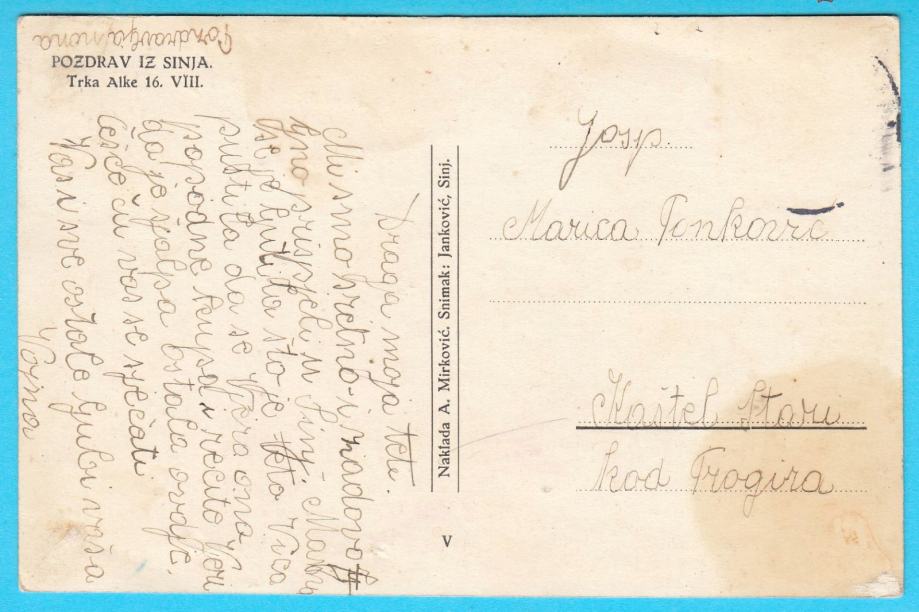 Pozdravlja nona
POZDRAV IZ SINJA.
Trka Alke 16. VIII.
Draga moja teto.
Mi smo sretno i zadovolj
no prispjeli u Sinj.
se je ljutila što je teto Vica
pustila da se Vjera ona
posodne kupa, recite Vjeri
da je šalpa ostala ovdje.
češće ću vas se sjećati
Vas i sve ostale ljubi vaša
Vojna
Naklada A. Mirković. Snimak: Janković, Sinj.
V
Josp.
Marica Tonković
Kaštel Stari
kod Trogira